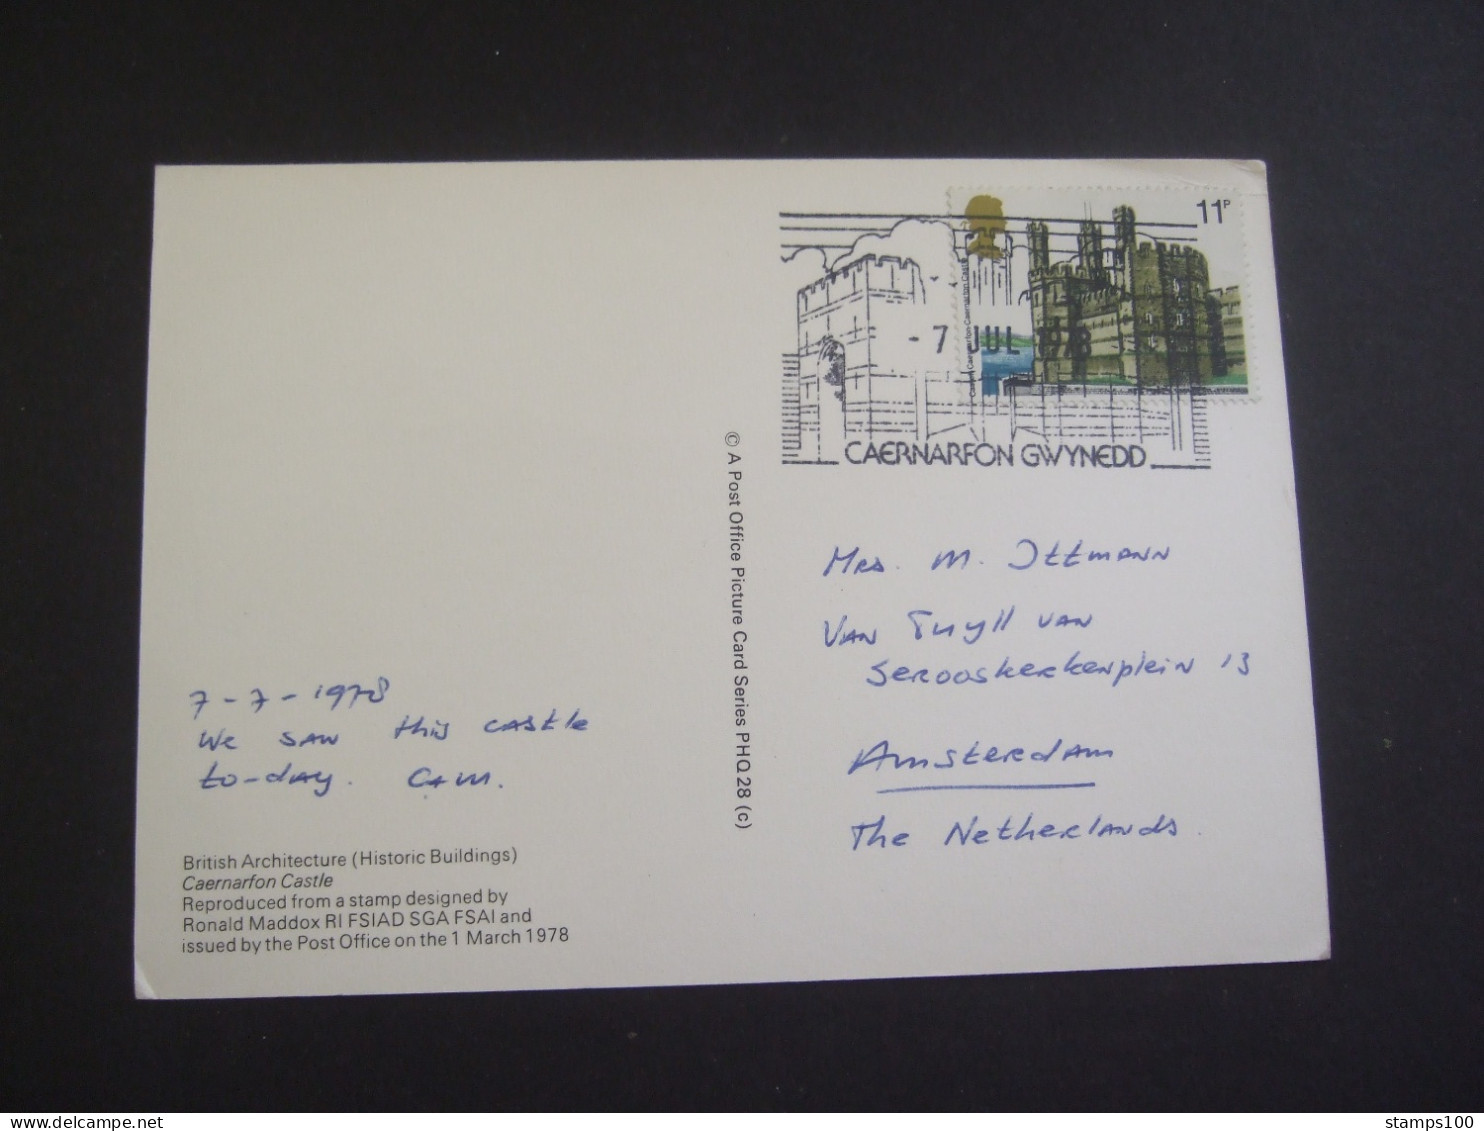 11P
Castell Caernarfon Caernarfon Castle
- 7 JUL 1978
CAERNARFON GWYNEDD
© A Post Office Picture Card Series PHQ 28 (c)
Mrs. M. Ittmann
Van Tuyll van
Serooskerkenplein 13
Amsterdam
The Netherlands
7-7-1978
We saw this castle
to-day. C+M.
British Architecture (Historic Buildings)
Caernarfon Castle
Reproduced from a stamp designed by
Ronald Maddox RI FSIAD SGA FSAI and
issued by the Post Office on the 1 March 1978
stamps100